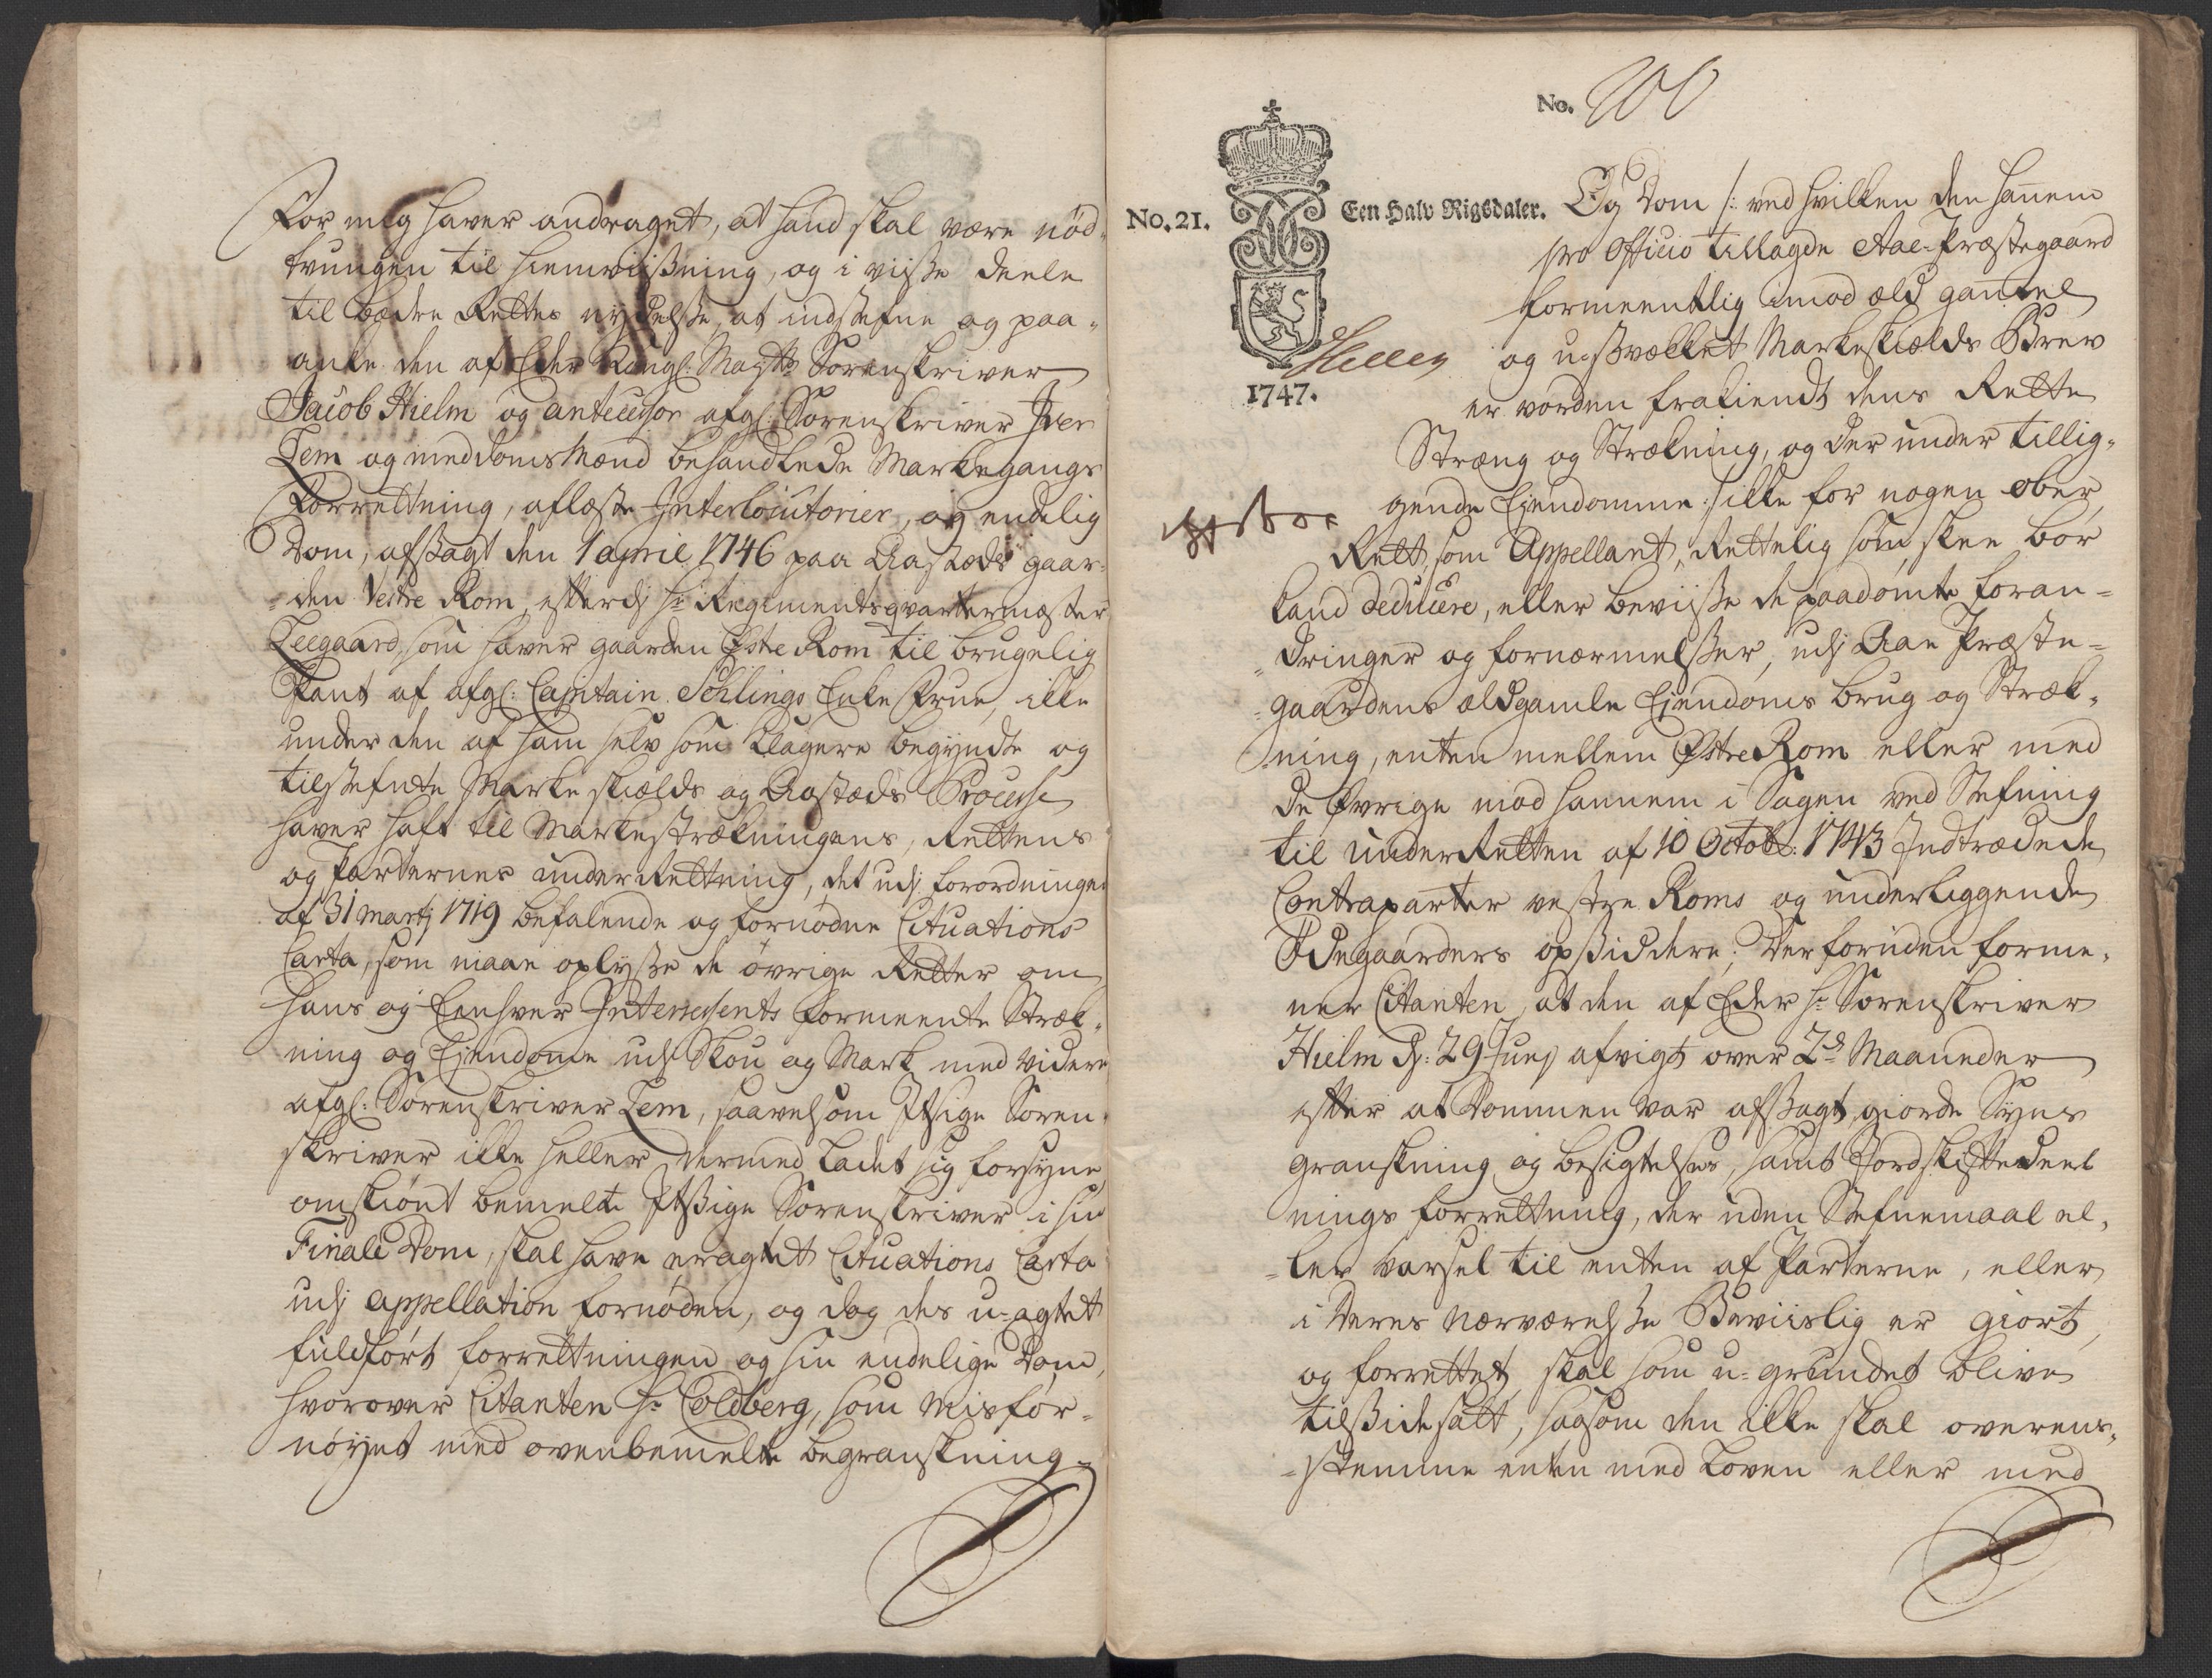 For mig haver andraget, at hand skal være nød-
tvungen til hiemviisning, og i visse deele
til bedre Rettes nydelsse, at indstefne og paa-
anke den af Eder Kongl: Maytts Sorenskriver
Jacob Hielm og antecessor afgl: Sorenskriver Iver
Lem og meddoms Mænd behandlede Markegangs
Forrettning, aflæste Interlocutorier, og endelig
Dom, afsagt den 1 april 1746 paa Aastæds gaar-
den Vestre Rom, efterdj Hr Regimentsqvartermester
Leegaard, som haver gaarden Østre Rom til brugelig
Pant af afgl: Capitain Schlings Enke Frue, ikke
under den af ham selv som Klagere begyndte og
tilstefnte Markeskields og Aastæds Processe
haver haft til Markestrækningens, Rettens
og Parternes underRettning, det udj forordningen
af 31 Martj 1719 befalende og fornødne Cituations
Carta, som maae oplysse de øvrige Retter om
hans og Eenhver Interessents formeente Stræk-
ning og Ejendome udj Skou og Mark med videre
afgl: Sorenskriver Lem, saavelsom Itzige Soren-
skriver ikke heller dermed ladet sig forsyne,
omskiønt bemelte Itzige Sorenskriver i sin
Finale Dom, skal have eragtet Cituations Carta
udj appellation fornøden, og dog des u-agtet
fuldført forrettningen og sin endelige Dom,
hvorover Citanten Hr Coldberg, som Misfor-
nøyet med ovenbemelte begranskning-
No. 100
No. 21.
Een Halv Rigsdaler.
1747.
Hielm
Og Dom /: ved hvilken den hannem
pro Officio tillagde Aae-Præstegaard
formeentlig imod æld gammel
og usvækket Markeskields Brev
er vorden frakiendt dens Rette
Stræng og Strækning, og der under tillig-
gende Ejendomme :/ ikke for nogen ober
Rett, som Appellant, Rettelig som skee bør
kand deducere, eller beviisse de paadømte foran-
dringer og fornærmelsser, udj Aae Præste-
gaardens ældgamle Ejendoms brug og Stræk-
ning, enten mellem Østre Rom eller med
de øvrige mod hannem i Sagen ved Stefning
til underRetten af 10 Octobr: 1743 Indtrædede
Contraparter vestre Roms og underliggende
Ødegaarders opsiddere; Derforuden forme-
ner Citanten, at den af Eder Hr Sorenskriver
Hielm d: 29 Junj afvigt over 2de Maaneder
efter at Dommen var afsagt, giorde Syns
granskning og besigtelses, samt Jordskiftedeel
nings forrettning, der uden Stefnemaal el-
ler varsel til enten af Parterne, eller
i Deres nærværelsse Beviislig er giort,
og forrettet, skal som u-grundet blive
tilsidesatt, saasom den ikke skal overens-
stemme enten med Loven eller med